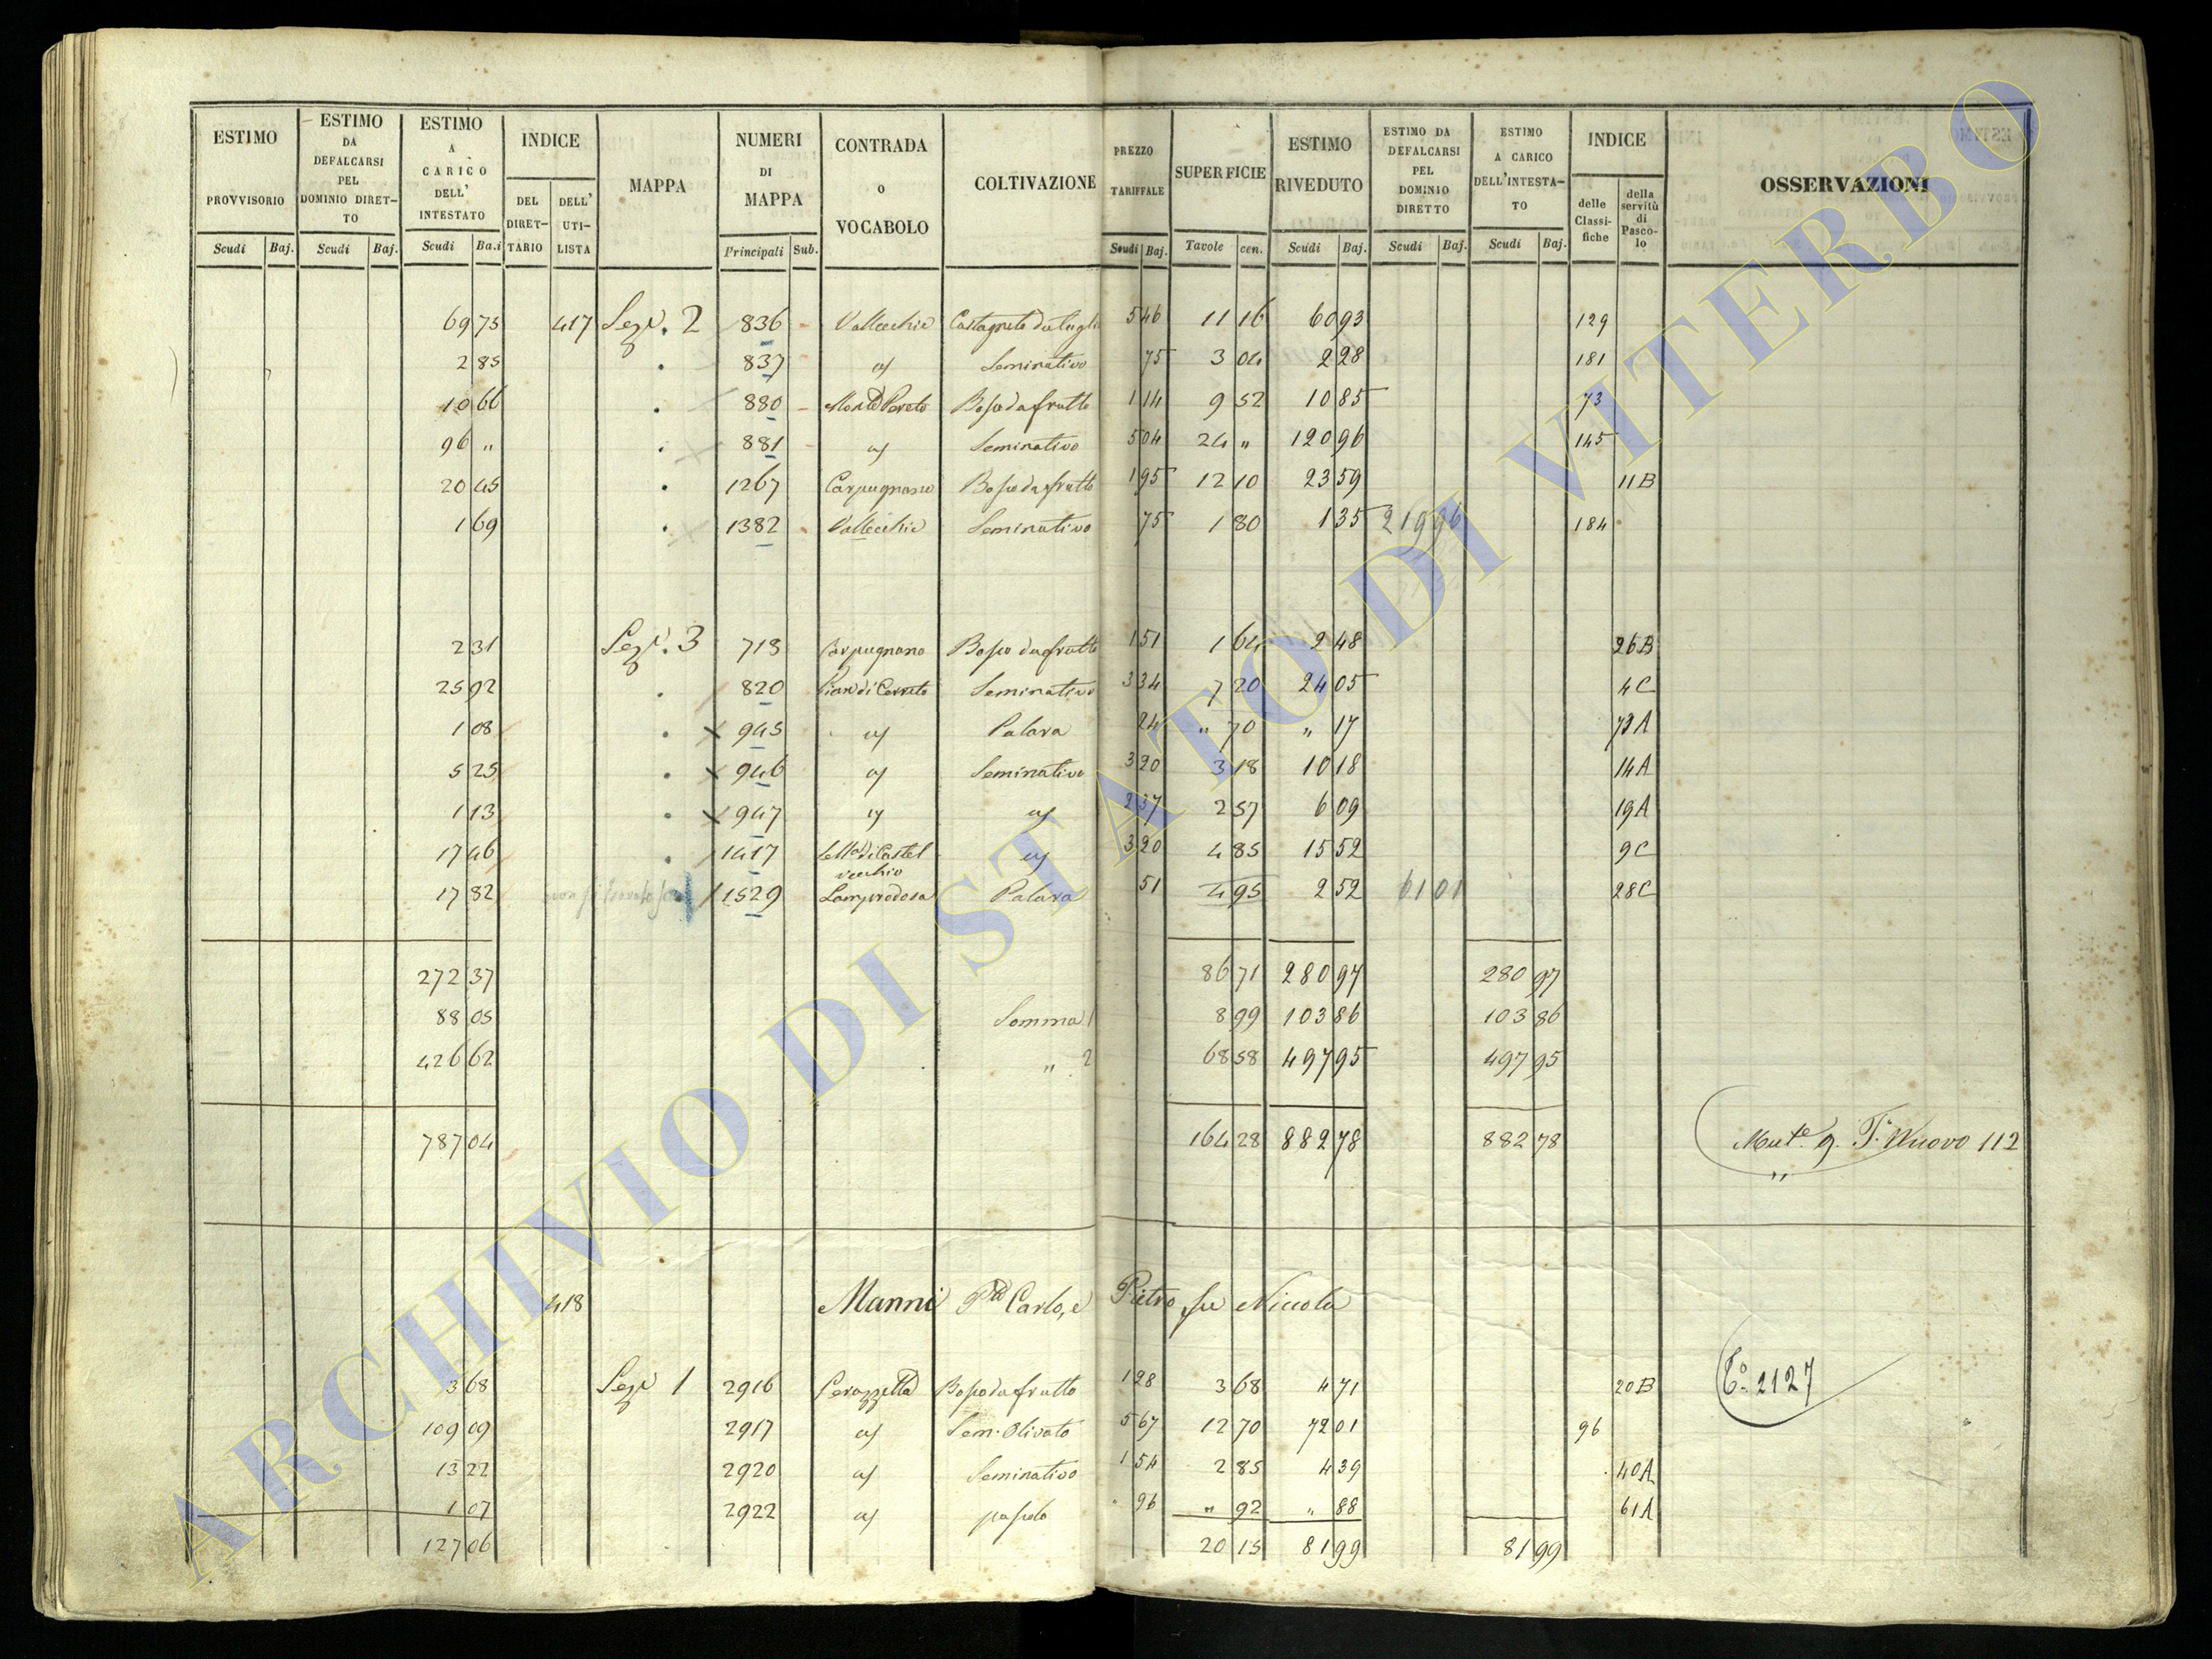 ESTIMO PROVVISORIO Scudi Baj. | ESTIMO DA DEFALCARSI PEL DOMINIO DIRETTO Scudi Baj. | ESTIMO A CARICO DELL' INTESTATO Scudi Ba.i | INDICE DEL DIRETTARIO DELL' UTILISTA | MAPPA | NUMERI DI MAPPA Principali Sub. | CONTRADA o VOCABOLO | COLTIVAZIONE | PREZZO TARIFFALE Scudi Baj. | SUPERFICIE Tavole cen. | ESTIMO RIVEDUTO Scudi Baj. | ESTIMO DA DEFALCARSI PEL DOMINIO DIRETTO Scudi Baj. | ESTIMO A CARICO DELL'INTESTATO Scudi Baj. | INDICE delle Classifiche della servitù di Pascolo | OSSERVAZIONI
69 75 417 Sez. 2 836 Vallecchie Castagneto da 5 46 11 16 60 93 129
2 85 837 Seminativo 75 3 04 2 28 181
10 66 880 Bosco da frutto 1 14 9 52 10 85 73
96 " 881 Seminativo 5 04 24 " 120 96 145
20 45 1267 Carpugnano Bosco da frutto 1 95 12 10 23 59 11B
1 69 1382 Vallecchie Seminativo 75 1 80 1 35 219 96 184
2 31 Sez. 3 718 Carpugnano Bosco da frutto 1 51 1 64 2 48 26B
25 92 820 Pian di Cerreto Seminativo 3 34 7 20 24 05 4C
1 08 945 Palara 24 " 70 " 17 73A
5 25 946 Seminativo 3 20 3 18 10 18 14A
1 13 947 2 37 2 57 6 09 19A
17 46 1417 di Castel vecchio 3 20 4 85 15 52 9C
17 82 1529 Palara 51 4 95 2 52 61 01 28C
272 37 86 71 280 97 280 97
88 05 Somma 1 8 99 103 86 103 86
426 62 " 2 68 58 497 95 497 95
787 04 164 28 882 78 882 78 Nuovo 112
418 Manni Carlo, e Pietro fu Niccola
3 68 Sez. 1 2916 Perazzetta Bosco da frutto 1 28 3 68 4 71 20B 2127
109 09 2917 Sem. Olivato 5 67 12 70 72 01 96
13 22 2920 Seminativo 1 54 2 85 4 39 40A
1 07 2922 pascolo " 96 " 92 " 88 61A
127 06 20 15 81 99 81 99
ARCHIVIO DI STATO DI VITERBO